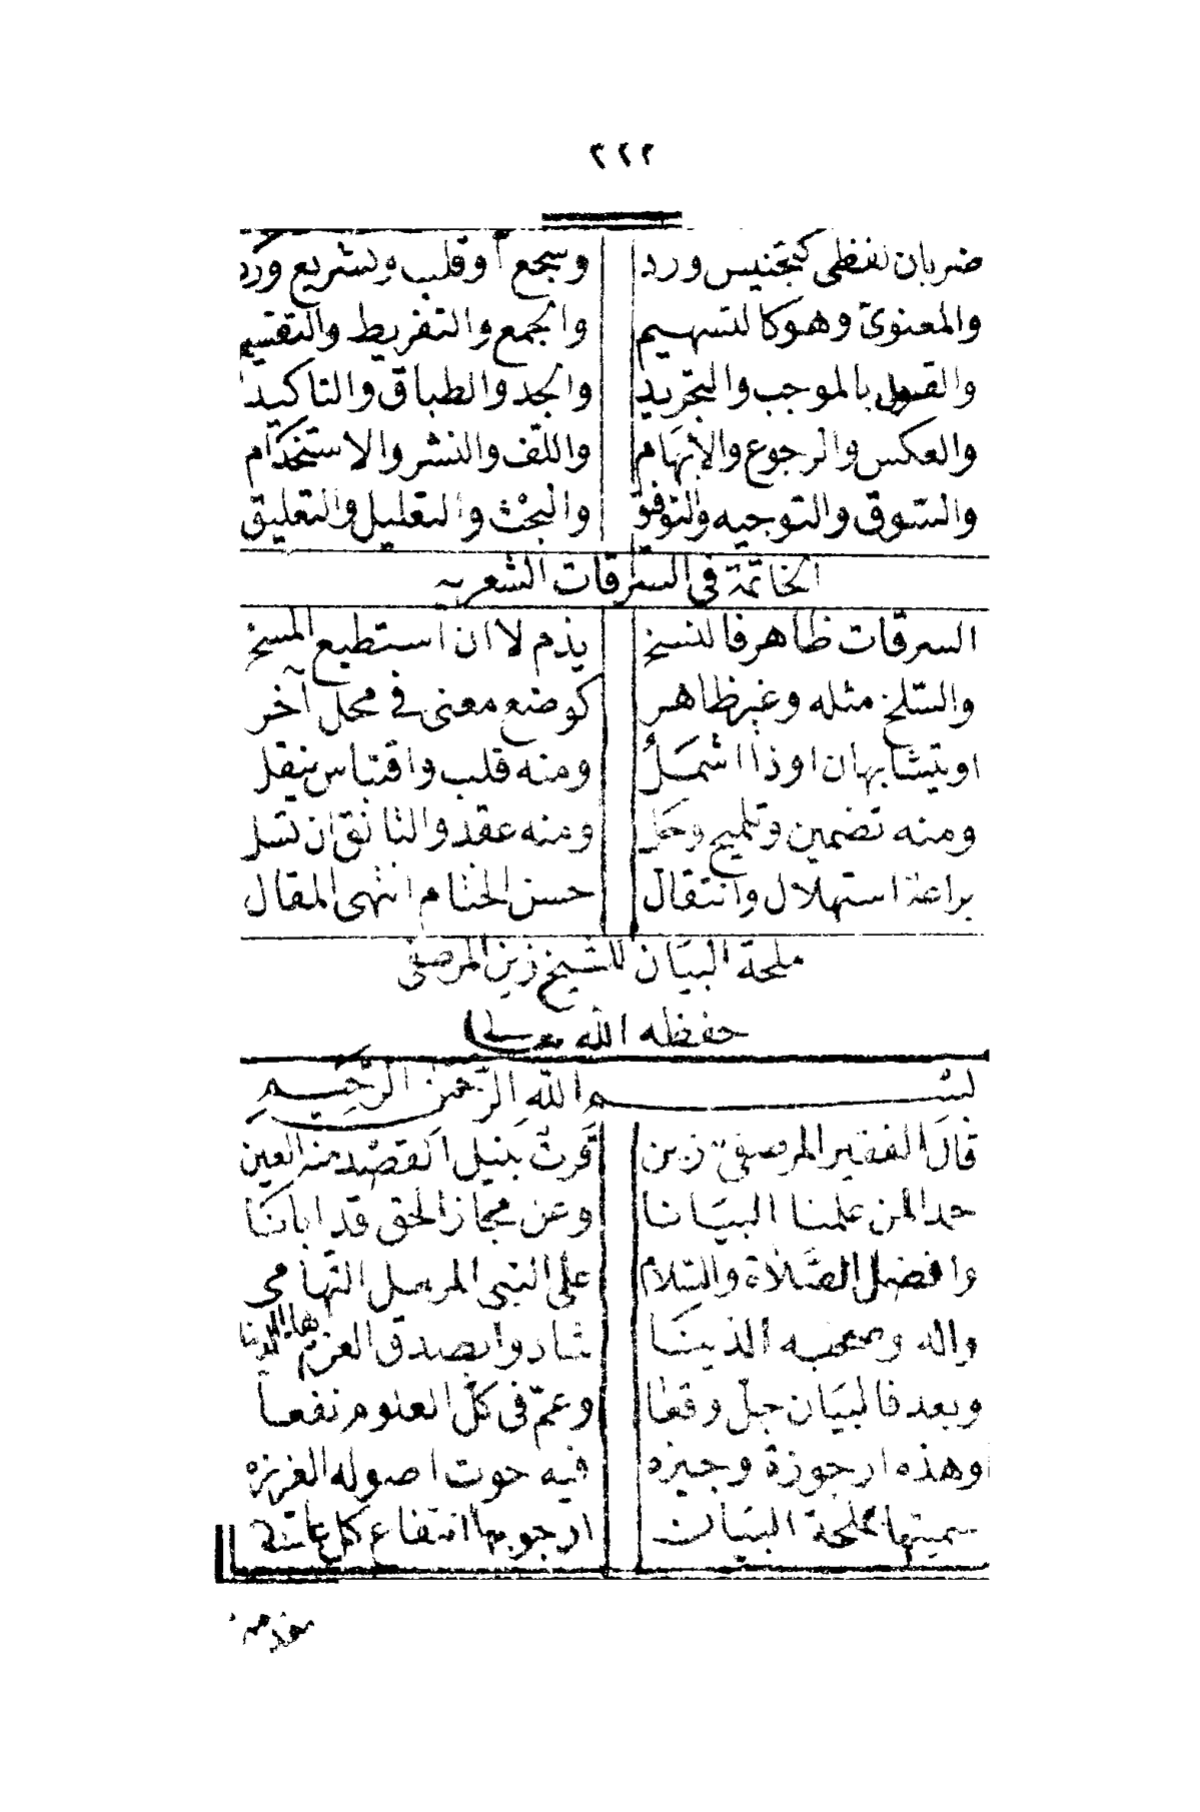 ٣٢٢
ضربان لفظى كتجنيس ورد وسجع أو قلب وتشريع ورد
والمعنوى وهو كالتسهيم والجمع والتفريط والتقسيم
والقول بالموجب والتجريد والجد والطباق والتاكيد
والعكس والرجوع والابهام واللف والنشر والاستخدام
والسوق والتوجيه والتوفق والبحث والتعليل والتعليق
الخاتمة فى السرقات الشعريه
السرقات ظاهر فالنسخ يذم لا ان استطيع المسخ
والسلخ مثله وغير ظاهر كوضع معنى فى محل آخر
او يتشابهان او ذا اشمل ومنه قلب واقتباس ينقل
ومنه تضمين وتلميح وحل ومنه عقد والتانق ان تسل
براعة استهلال وانتقال حسن الختام انتهى المقال
ملحة البيان للشيخ زين المرصفى
حفظه الله تعالى
بسم الله الرحمن الرحيم
قال الفقير المرصفى زين قرت بنيل القصد منه العين
حمدا لمن علمنا البيانا وعن مجاز الحق قد ابانا
وافضل الصلاة والسلام على النبى المرسل التهامى
واله وصحبه الذينا شادوا بصدق العزم هذا الدينا
وبعد فالبيان جل وقعا وعم فى كل العلوم نفعا
وهذه ارجوزة وجيزه فيه حوت اصوله العزيزه
سميتها بملحة البيان ارجو بها انتفاع كل عانى
مقدمه